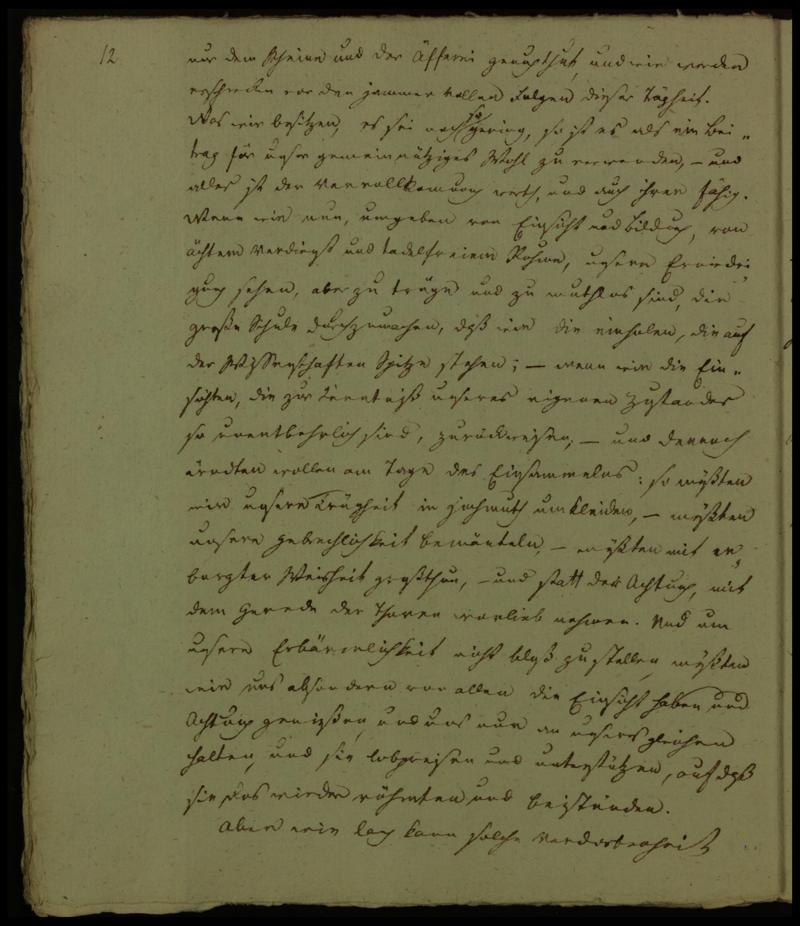 12
nur dem Scheine und der Äfferei gehuldhat, und wir werden
erschrecken vor den jammervollen Folgen dieser Trägheit.
Was wir besitzen, es sei noch so gering, so ist es als ein Bei„
trag für unser gemeinnütziges Wohl zu verwenden, – und
alles ist der Vervollkomung werth, und auch ihrer fähig.
Wenn wir nun, umgeben von Einsicht und Bildung, von
ächtem Verdienst und tadelfreiem Ruhme, unsere Erniedri
gung sehen, aber zu träge und zu muthlos sind, die
große Schule durchzumachen, daß wir die einholen, die auf
der Wissenschaften Spitze stehen; – wenn wir die Ein„
sichten, die zur Kenntniß unseres eigenen Zustandes
so unentbehrlich sind, zurückweisen, – und dennoch
ärndten wollen am Tage des Einsammelns: so müßten
wir unsere Trägheit in Hochmuth umkleiden, – müßten
unsere Gebrechlichkeit bemänteln, – müßten mit er„
borgter Weisheit großthun, – und statt der Achtung, mit
dem Gerede der Thoren vorlieb nehmen. Und um
unsere Erbärmlichkeit nicht blos zu stellen, müßten
wir uns absondern von allen die Einsicht haben und
Achtung genießen, und uns nur an unsers gleichen
halten, und sie lobpreisen und unterstützen, auf daß
sie uns wieder rühmten und beistünden.
Aber wie lang kann solche Verdorbenheit